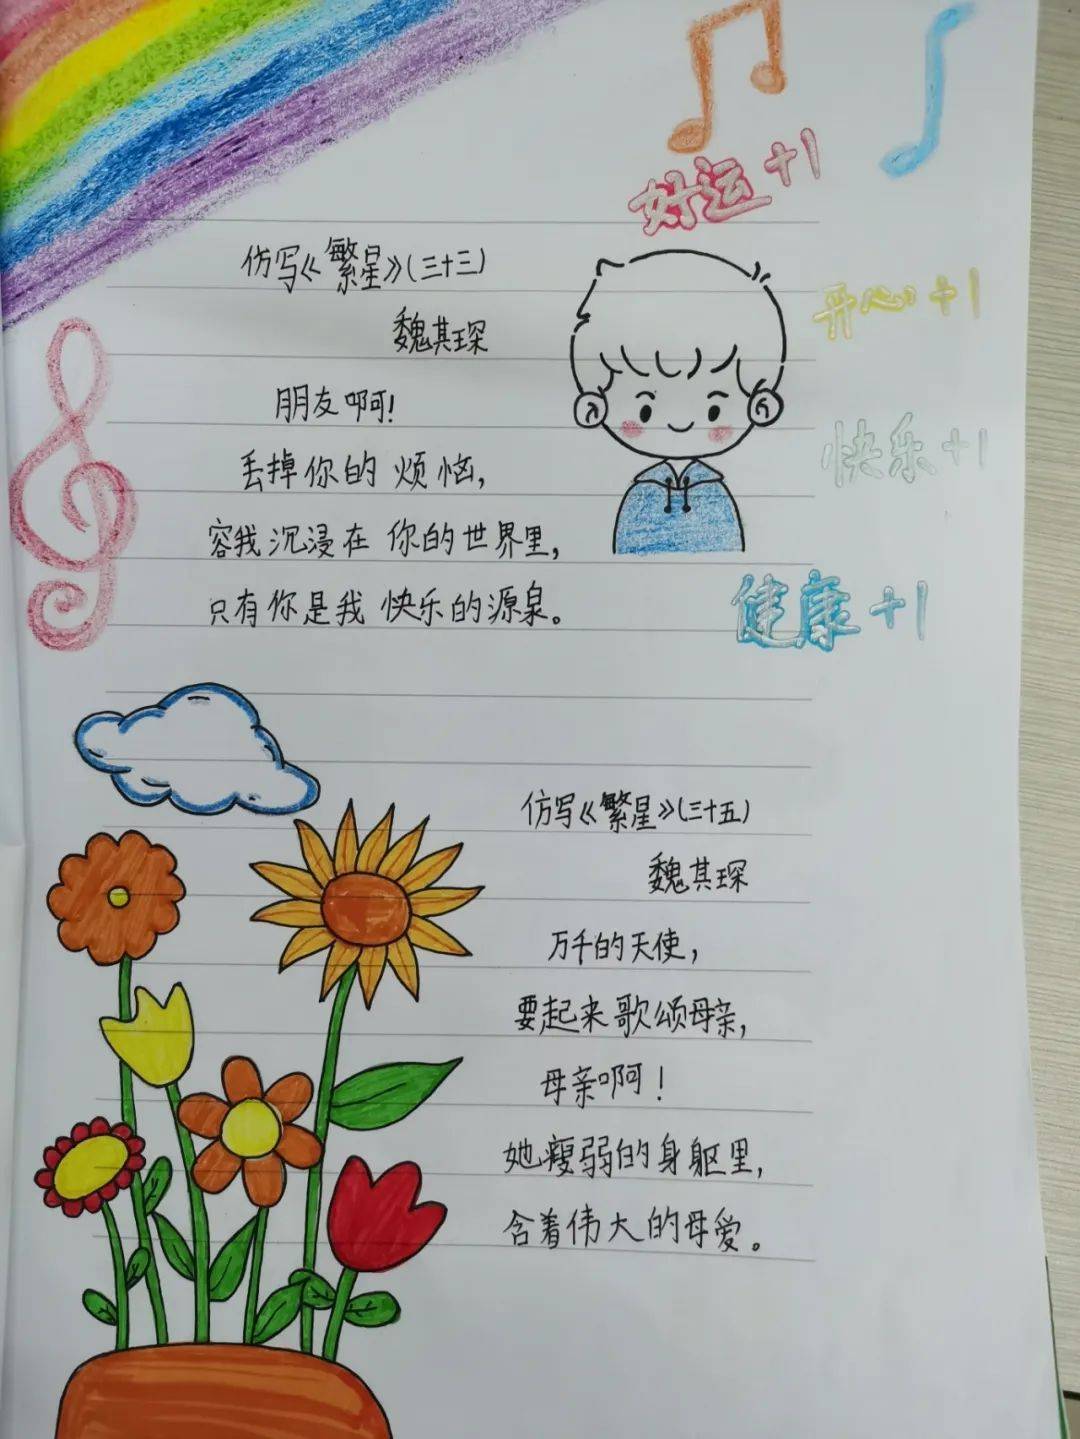 好运+1
仿写《繁星》(三十三)
开心+1
魏其琛
朋友啊!
丢掉你的烦恼,
快乐+1
容我沉浸在你的世界里,
只有你是我快乐的源泉。
健康+1
仿写《繁星》(三十五)
魏其琛
万千的天使,
要起来歌颂母亲,
母亲啊!
她瘦弱的身躯里,
含着伟大的母爱。